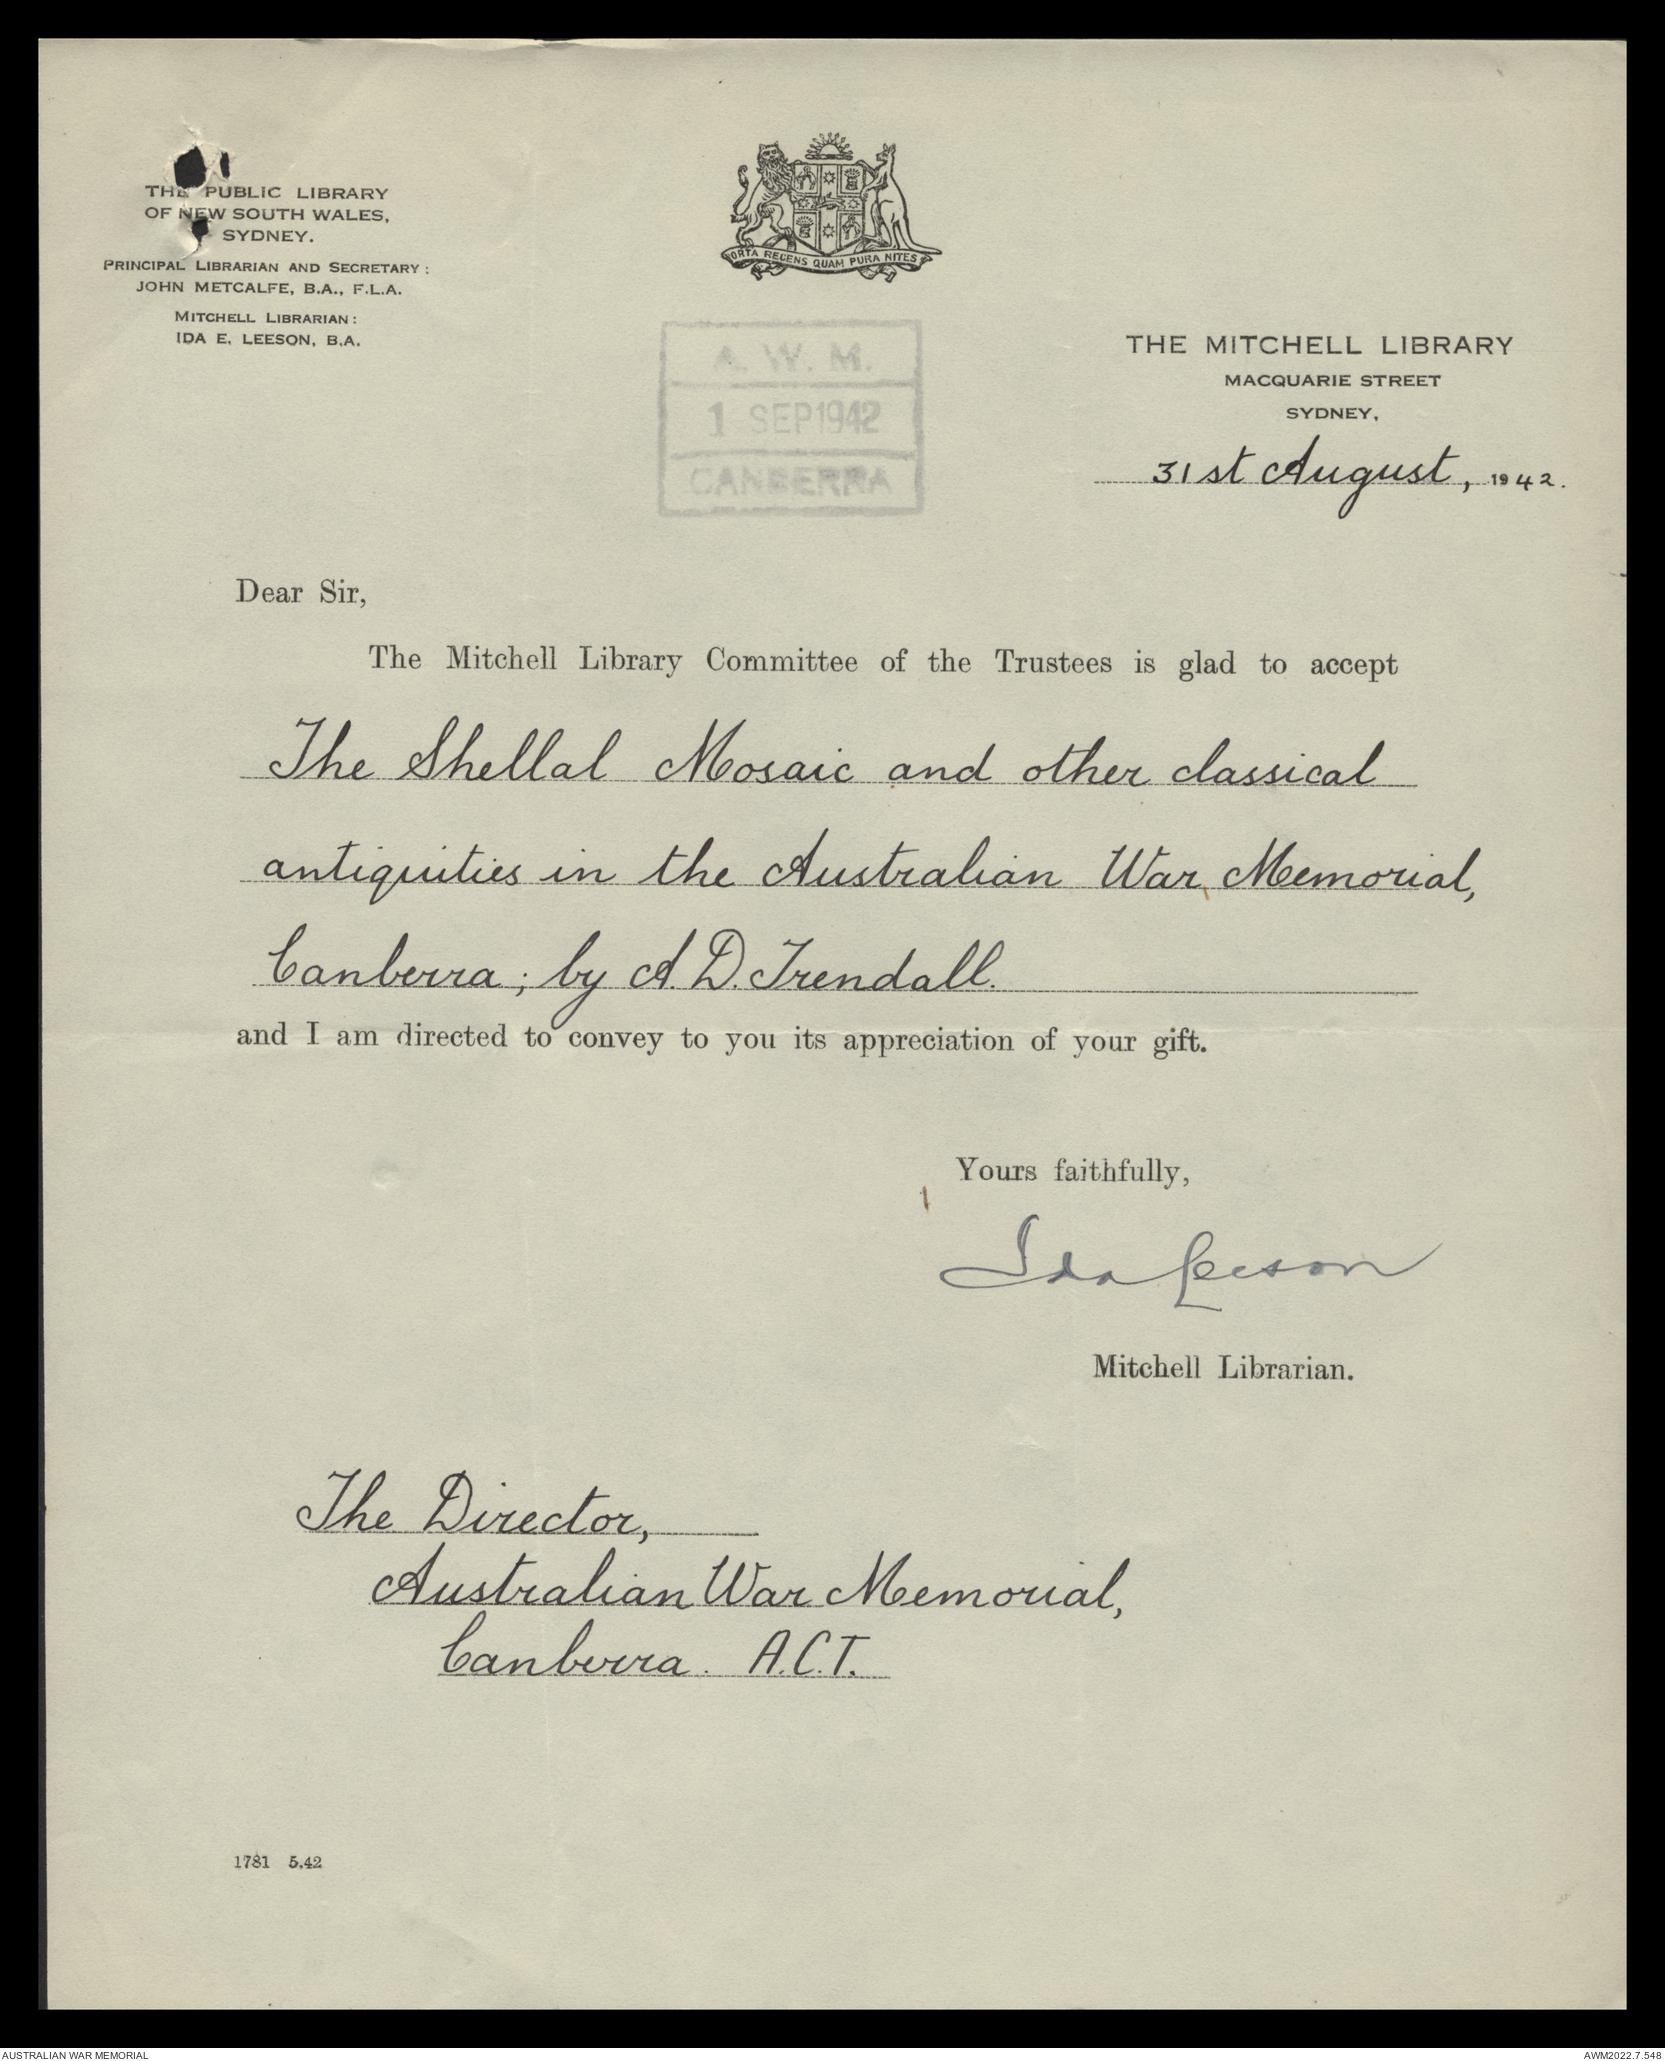 THE PUBLIC LIBRARY
OF NEW SOUTH WALES,
SYDNEY.
PRINCIPAL LIBRARIAN AND SECRETARY:
JOHN METCALFE, B.A., F.L.A.
MITCHELL LIBRARIAN:
IDA E. LEESON, B.A.
ORTA RECENS QUAM PURA NITES
A. W. M.
1 SEP 1942
CANBERRA
THE MITCHELL LIBRARY
MACQUARIE STREET
SYDNEY,
31st August, 1942.
Dear Sir,
The Mitchell Library Committee of the Trustees is glad to accept
The Shellal Mosaic and other classical
antiquities in the Australian War Memorial,
Canberra; by A. D. Trendall.
and I am directed to convey to you its appreciation of your gift.
Yours faithfully,
Ida Leeson
Mitchell Librarian.
The Director,
Australian War Memorial,
Canberra. A.C.T.
1781 5.42
AUSTRALIAN WAR MEMORIAL
AWM2022.7.548